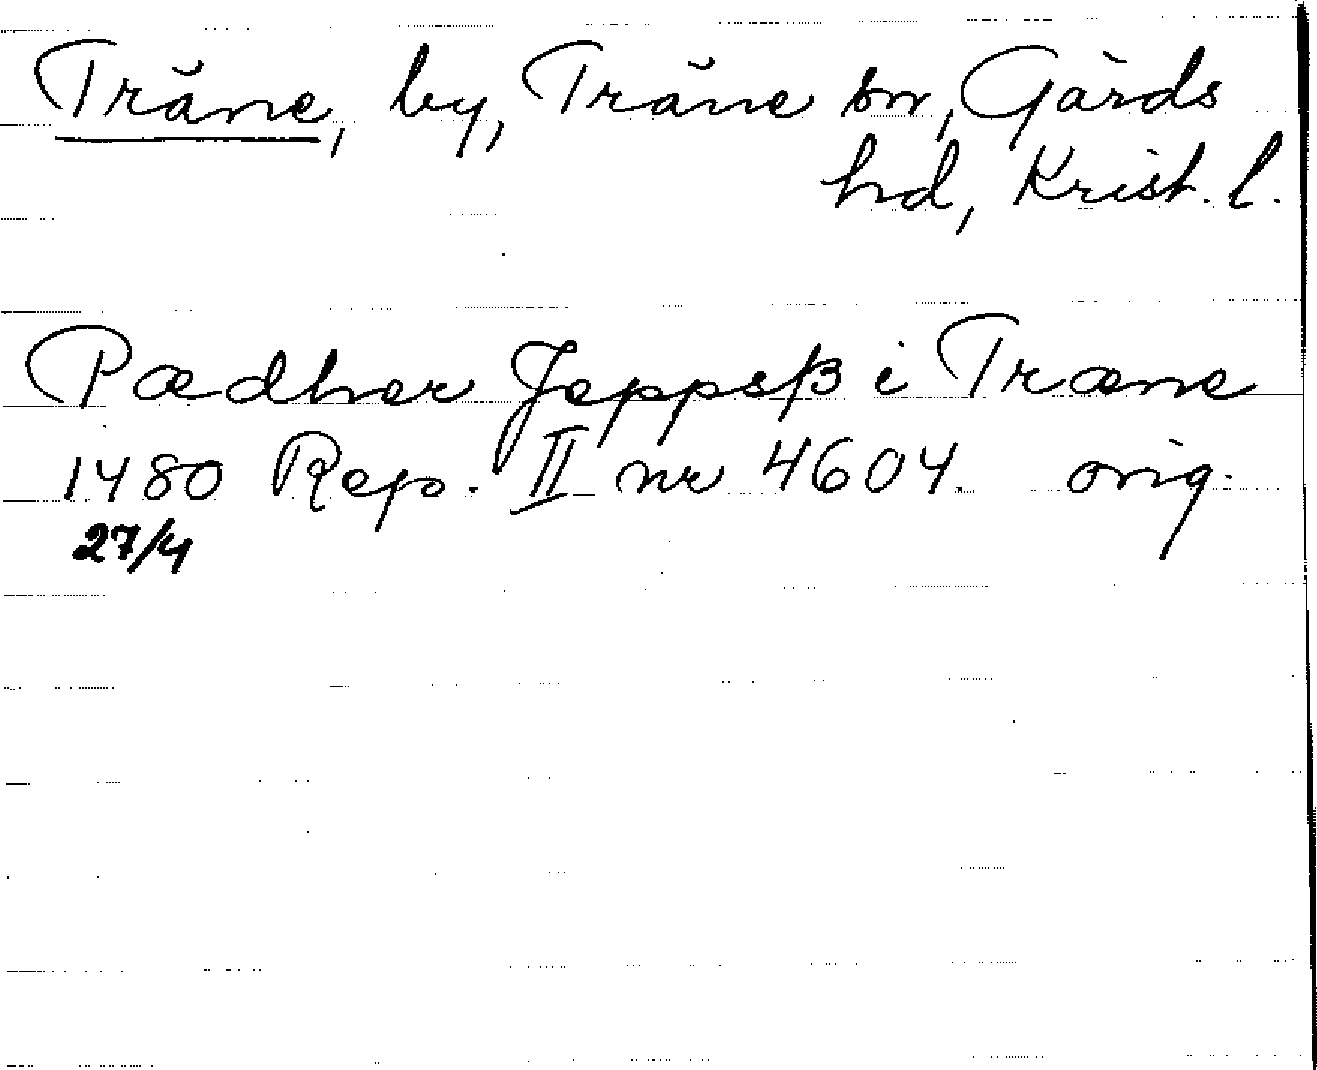 Träne, by, Träne sn, Gärds
hd, Krist. l.
Pædher Jeppsß i Træne
1480 Rep. II nr 4604. orig.
27/4